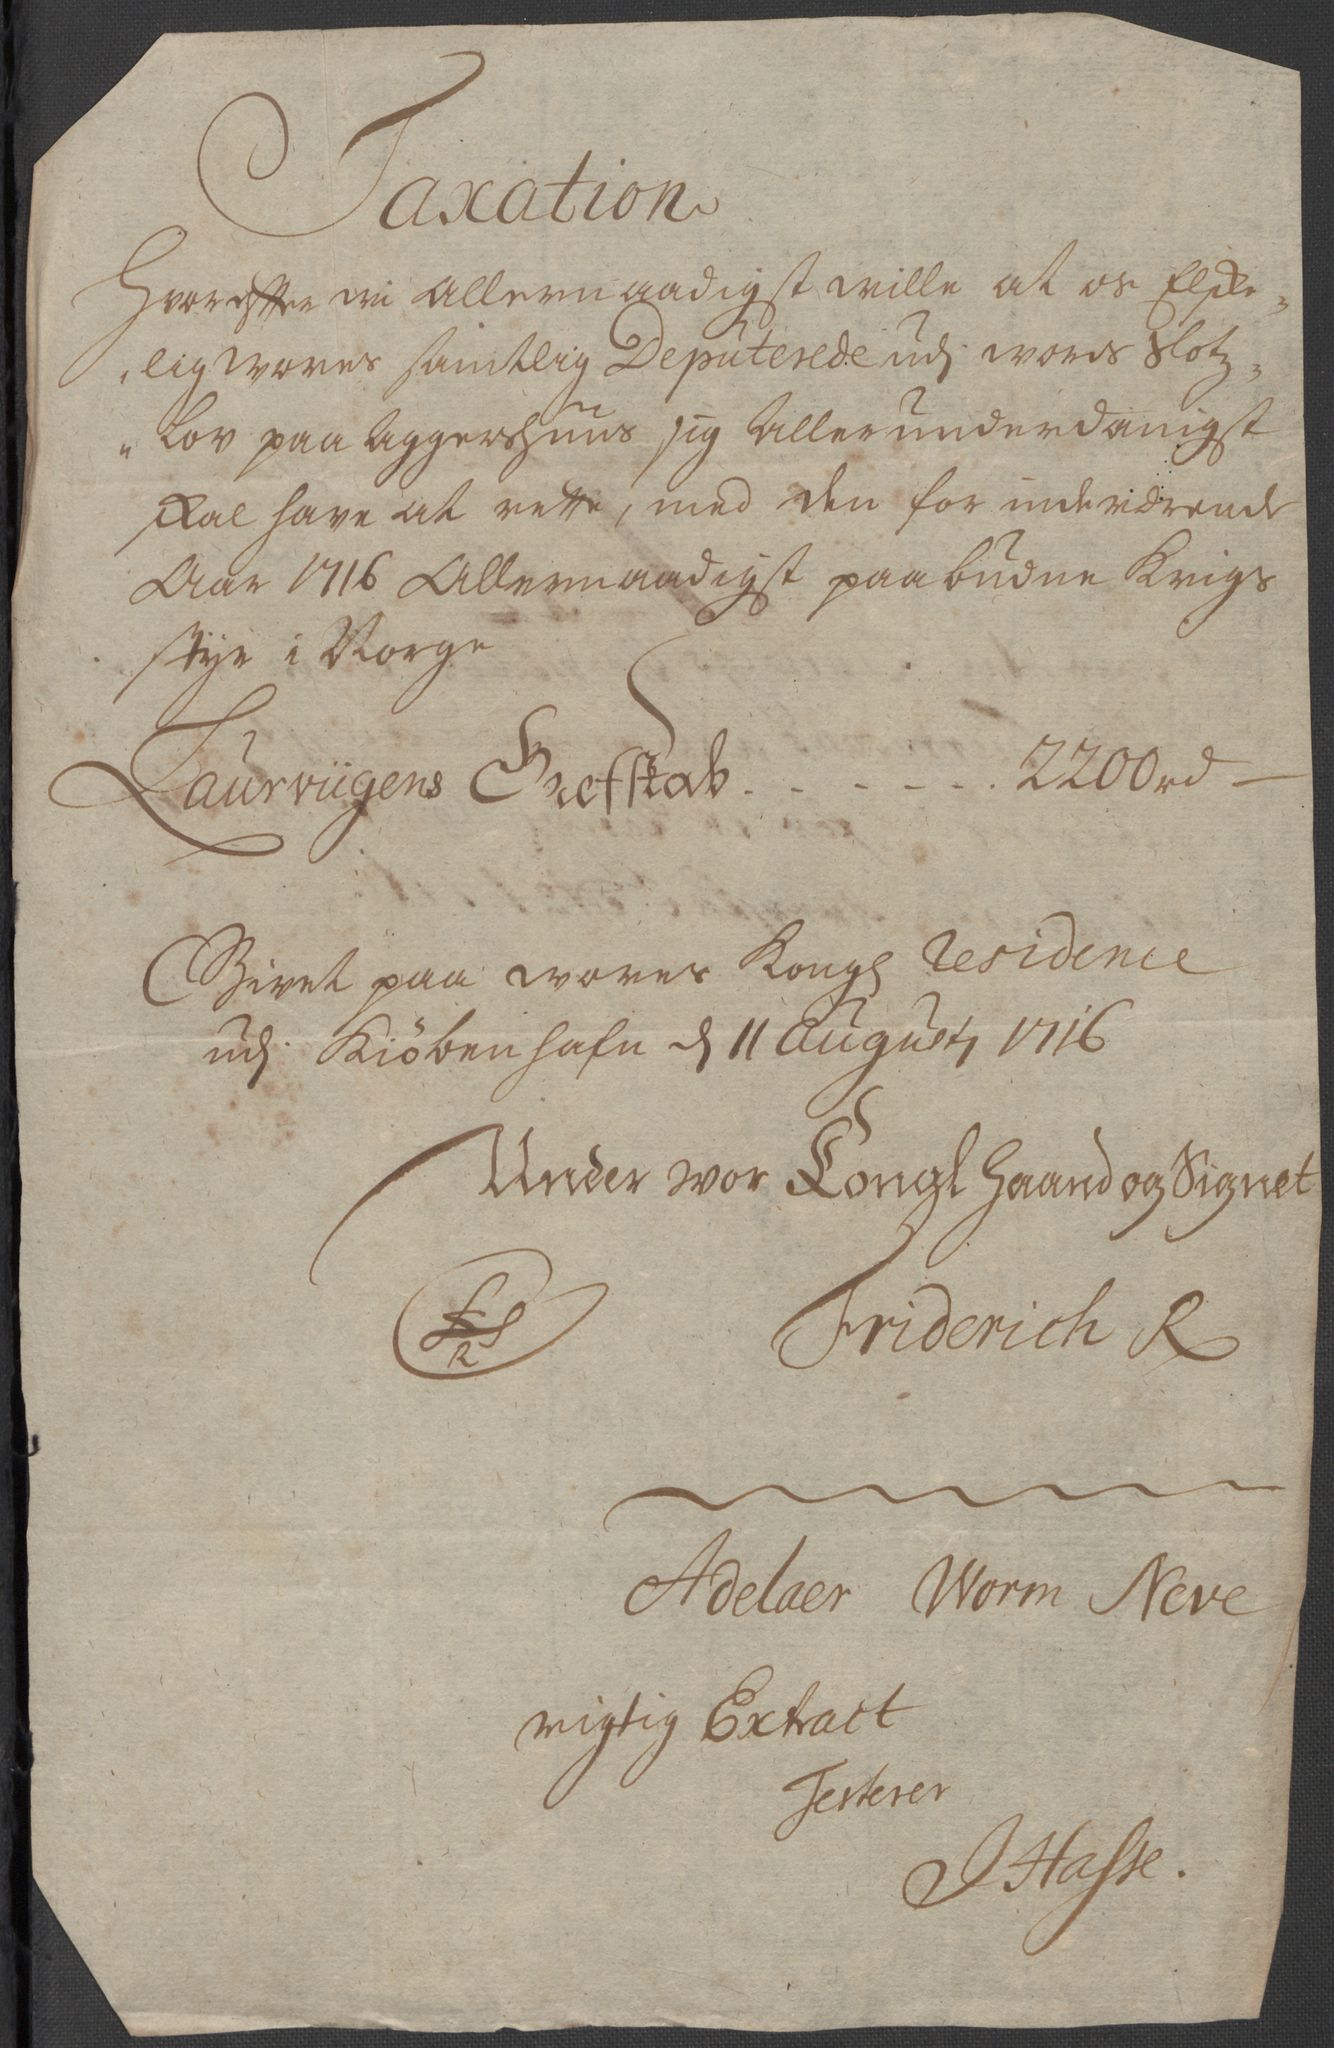 Taxation
Hvorefter wi Allernaadigst wille at os Elske-
"lig wores samtlig Deputerede udj wores Slotz-
"Lov paa Aggershuus sig Allerunderdanigst
skal have at rette, med den for indeværende
Aar 1716 Allernaadigst paabudne Krigs
Styr i Norge
Laurviigens Grefskab . . . . . . 2200 rd –
Givet paa wores Kongl Residence
udj Kiöbenhafn d 11 Augustj 1716
Under wor Kongl Haand og Signet
LS
R
Friderich R
Adelaer Worm Neve
rigtig Extract
Testerer
J Hasse.